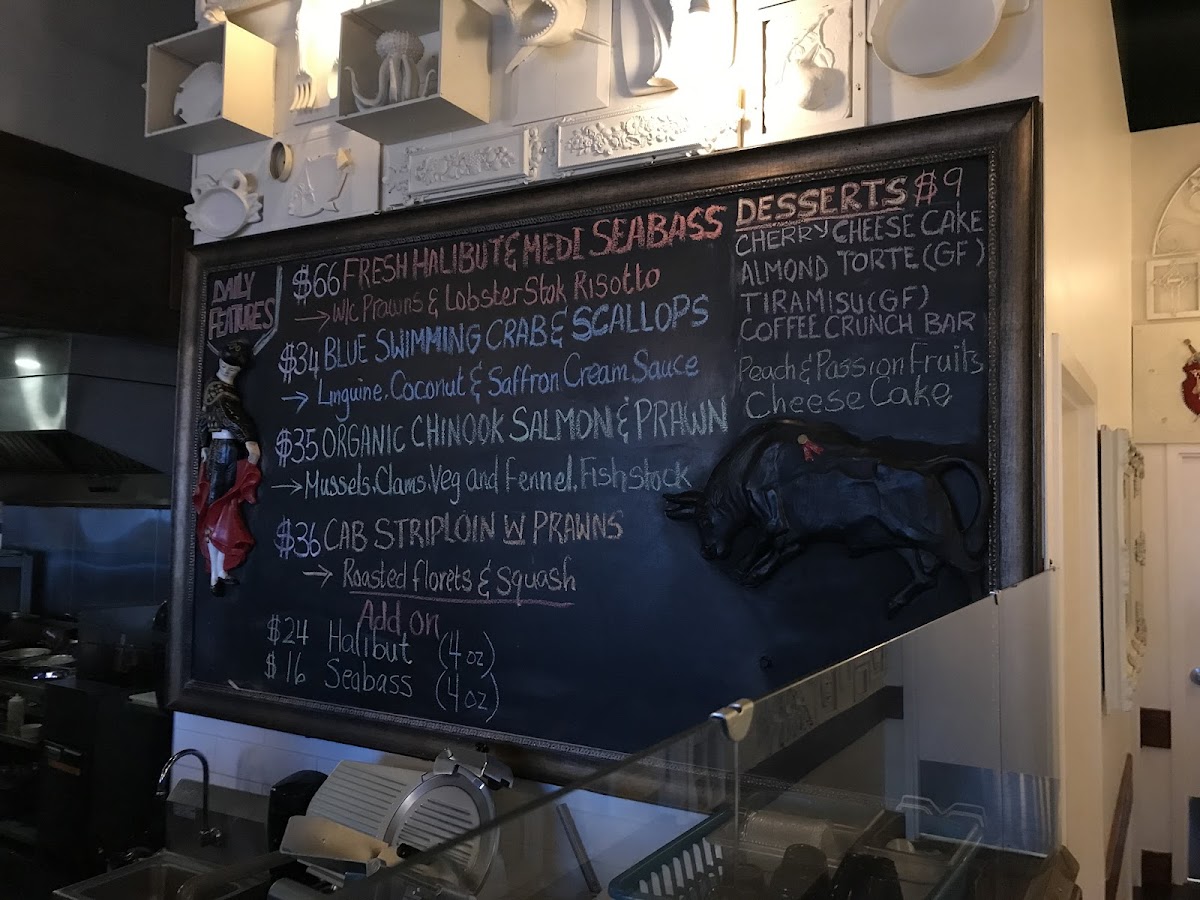 DAILY
FEATURES
$66 FRESH HALIBUT & MEDI SEABASS
→ W/c Prawns & Lobster Stok Risotto
$34 BLUE SWIMMING CRAB & SCALLOPS
→ Linguine, Coconut & Saffron Cream Sauce
$35 ORGANIC CHINOOK SALMON & PRAWN
→ Mussels, Clams, Veg and Fennel, Fishstock
$36 CAB STRIPLOIN W PRAWNS
→ Roasted florets & Squash
Add on
$24 Halibut (4 oz)
$16 Seabass (4 oz)
DESSERTS $9
CHERRY CHEESE CAKE
ALMOND TORTE (GF)
TIRAMISU (GF)
COFFEE CRUNCH BAR
Peach & Passion Fruits
Cheese Cake